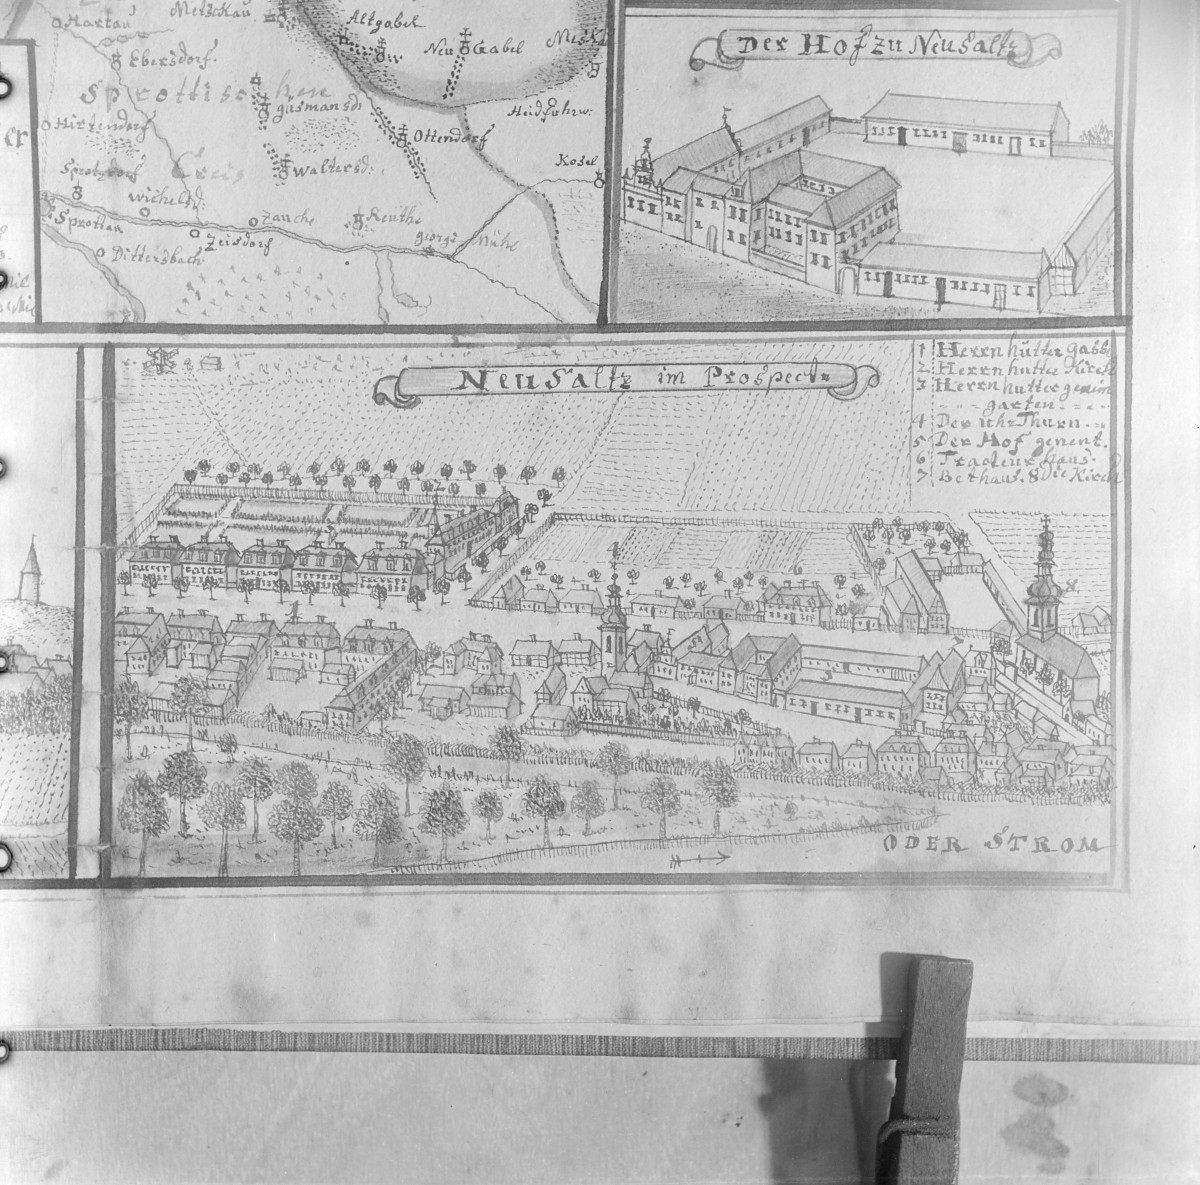 Hartau
Metschkau
Altgabel
Neu Gabel
Ebersdorf
Sprottischen
gusmansd:
Heidfuhrw:
Hirtendorf
Ottendorf
Creis
Waltersd:
Kosel
Wichelsd:
Sprottau
Zauche
Reuthe
Zeisdorf
georgs Mühl
Dittersbach
Der Hof zu Neusaltz
Neusaltz im Prospect
1 Herrnhutter gasse
2 Herrnhutter Kirch
3 Herrnhutter gemein
garten
4 Der uhr Thurn
5 Der Hof genent.
6 Tracteur haus
7 Bethaus. 8 Die Kirch
ODER STROM